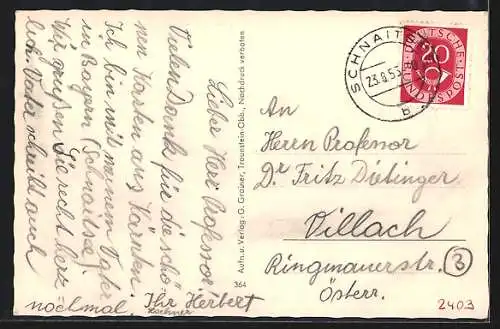 Lieber Herr Professor.
Vielen Dank für die schö-
nen Karten aus Kärnten.
Ich bin mit meinem Vater
in Bayern (Schnaitsee)
Wir grüßen Sie recht herz-
lich. Vater schreibt auch
nochmal. Ihr Herbert
Aufn. u. Verlag: G. Graüner, Traunstein Obb., Nachdruck verboten
364
SCHNAIT
23.8.53
b
DEUTSCHE
BUNDESPOST
20
An
Herrn Professor
Dr Fritz Dietinger
Villach
Ringmauerstr. 3
Österr.
2403